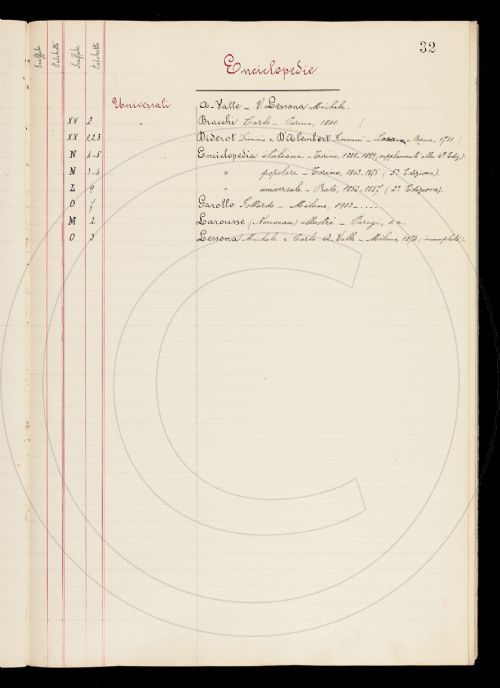 32
Scaffale Palchetto Scaffale Palchetto
Enciclopedie
Universali A-Valle - V. Lessona Michele.
XV 2 " Bracchi Carlo - Parma, 1840
XX 1,2,3 Diderot Dionisio e D'Alembert Giovanni -
N 4-5 Enciclopedia italiana - Torino, supplemento alla 6ª Ediz.).
N 3-4 " popolare - Torino, (5ª Edizione).
L 9 " universale - 1852-1857 (2ª Edizione).
O 7 Garollo Gottardo - Milano, 1913 - ....
M 2 Larousse (Nouveau) illustré - Parigi, s.a.
O 3 Lessona Michele e Carlo A-Valle - Milano 1874 (incompleta).